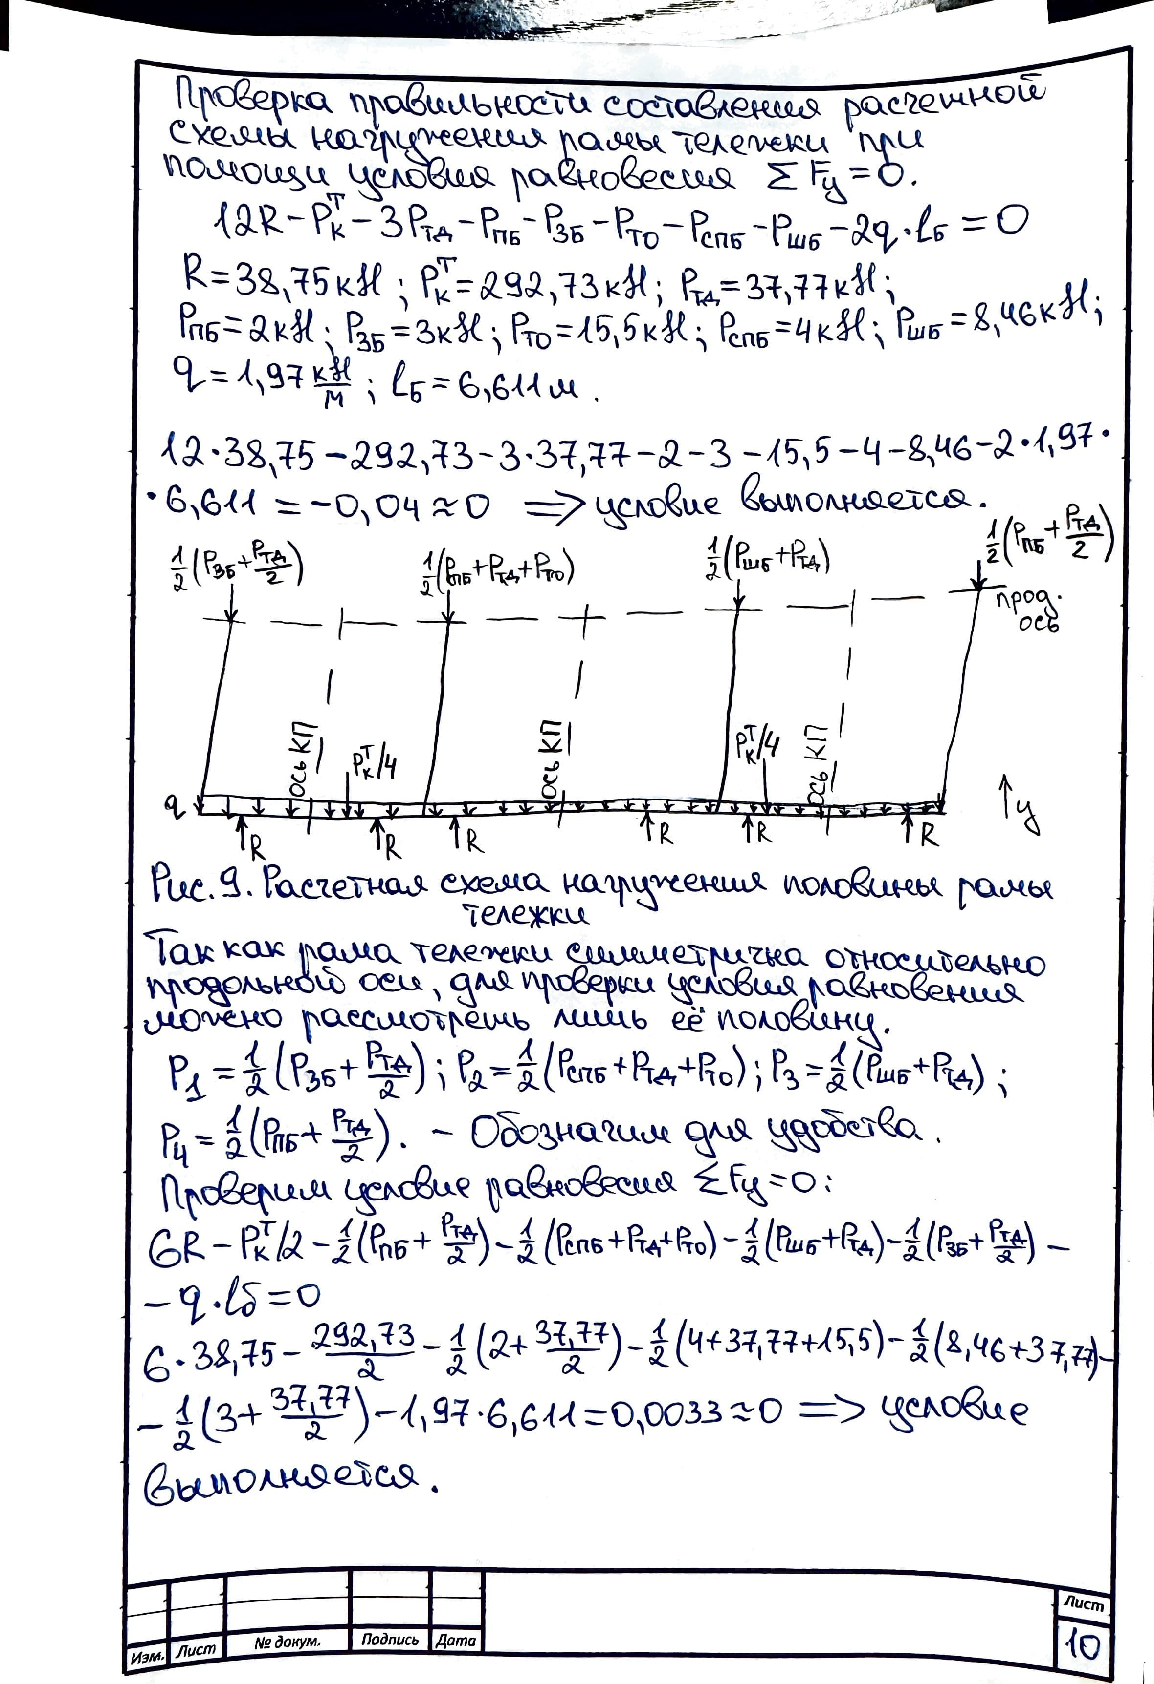 Проверка правильности составления расчетной
схемы нагружения рамы тележки при
помощи условия равновесия ΣFy=0.
12R-Pкᵀ-3Pтд-Pпб-Pзб-Pто-Pспб-Pшб-2q·lб=0
R=38,75кН; Pкᵀ=292,73кН; Pтд=37,77кН;
Pпб=2кН; Pзб=3кН; Pто=15,5кН; Pспб=4кН; Pшб=8,46кН;
q=1,97 кН/м; lб=6,611м.
12·38,75-292,73-3·37,77-2-3-15,5-4-8,46-2·1,97·
·6,611=-0,04≈0 => условие выполняется.
1/2(Pзб+Pтд/2) 1/2(Pспб+Pтд+Pто) 1/2(Pшб+Pтд) 1/2(Pпб+Pтд/2)
прод.
ось
ось КП Pкᵀ/4 ось КП Pкᵀ/4 ось КП
q y
R R R R R R
Рис.9. Расчетная схема нагружения половины рамы
тележки
Так как рама тележки симметрична относительно
продольной оси, для проверки условия равновения
можно рассмотреть лишь её половину.
P1=1/2(Pзб+Pтд/2); P2=1/2(Pспб+Pтд+Pто); P3=1/2(Pшб+Pтд);
P4=1/2(Pпб+Pтд/2). - Обозначим для удобства.
Проверим условие равновесия ΣFy=0:
6R-Pкᵀ/2-1/2(Pпб+Pтд/2)-1/2(Pспб+Pтд+Pто)-1/2(Pшб+Pтд)-1/2(Pзб+Pтд/2)-
-q·lб=0
6·38,75-292,73/2-1/2(2+37,77/2)-1/2(4+37,77+15,5)-1/2(8,46+37,77)-
-1/2(3+37,77/2)-1,97·6,611=0,0033≈0 => условие
выполняется.
Лист
Изм. Лист № докум. Подпись Дата
10